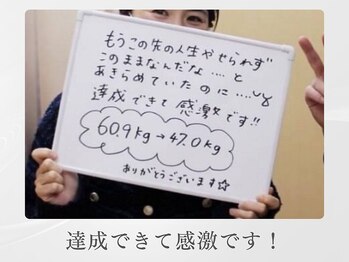 もうこの先の人生やせられず
このままなんだな....と
あきらめていたのに.....
達成できて感激です!!
60.9kg→47.0kg
ありがとうございます☆
達成できて感激です！